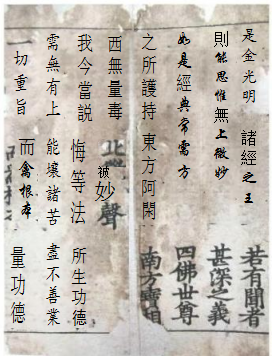 是金光明 諸經之王 若有聞者
則能思惟無上微妙 甚深之義
如是經典常需方 四佛世尊
之所護持 東方阿閑 南方寶相
西無量毒 北 被妙聲
我今當説 悔等法 所生功德
需無有上 能壞諸苦 盡不善業
一切重旨 而禽根本 量功德